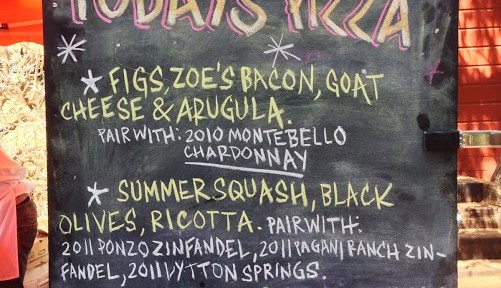 TODAY'S PIZZA
* FIGS, ZOE'S BACON, GOAT
CHEESE & ARUGULA.
PAIR WITH: 2010 MONTEBELLO
CHARDONNAY
* SUMMER SQUASH, BLACK
OLIVES, RICOTTA. PAIR WITH:
2011 PONZO ZINFANDEL, 2011 PAGANI RANCH ZIN-
FANDEL, 2011 LYTTON SPRINGS.